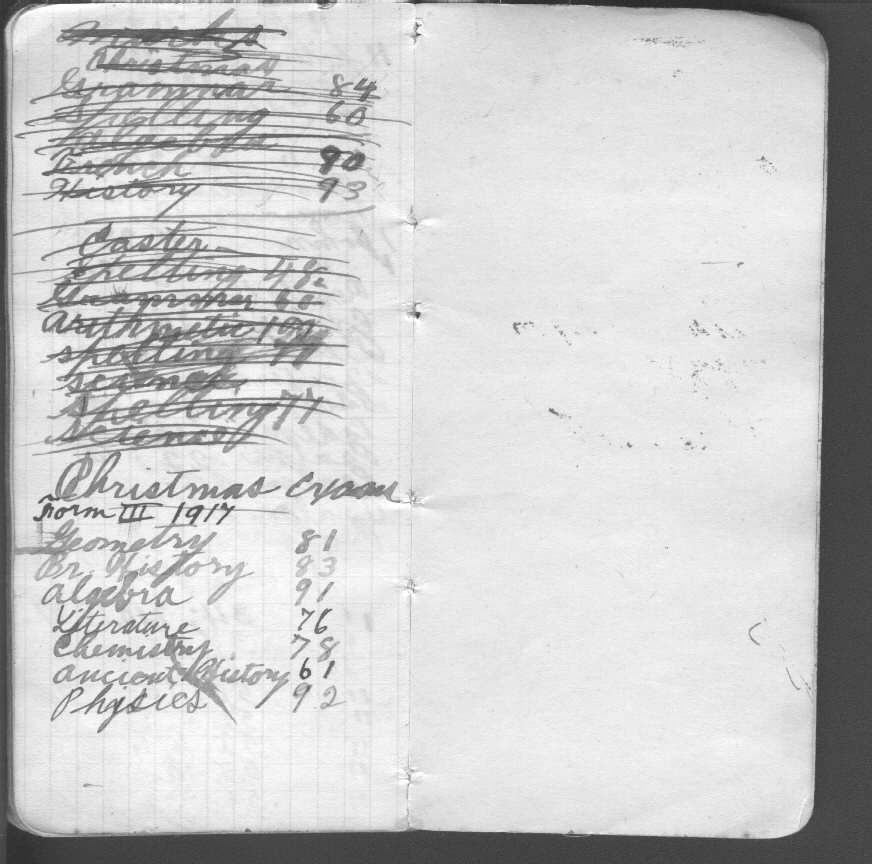 Marks
Christmas
Grammar 84
Spelling 60
Algebra
French 90
History 93
Easter
Spelling 48
Grammar 60
Arithmetic 100
spelling 77
science
Spelling 77
Science
Christmas Exam
Form III 1917
Geometry 81
Br. History 83
Algebra 91
Literature 76
Chemistry 78
Ancient History 61
Physics 92